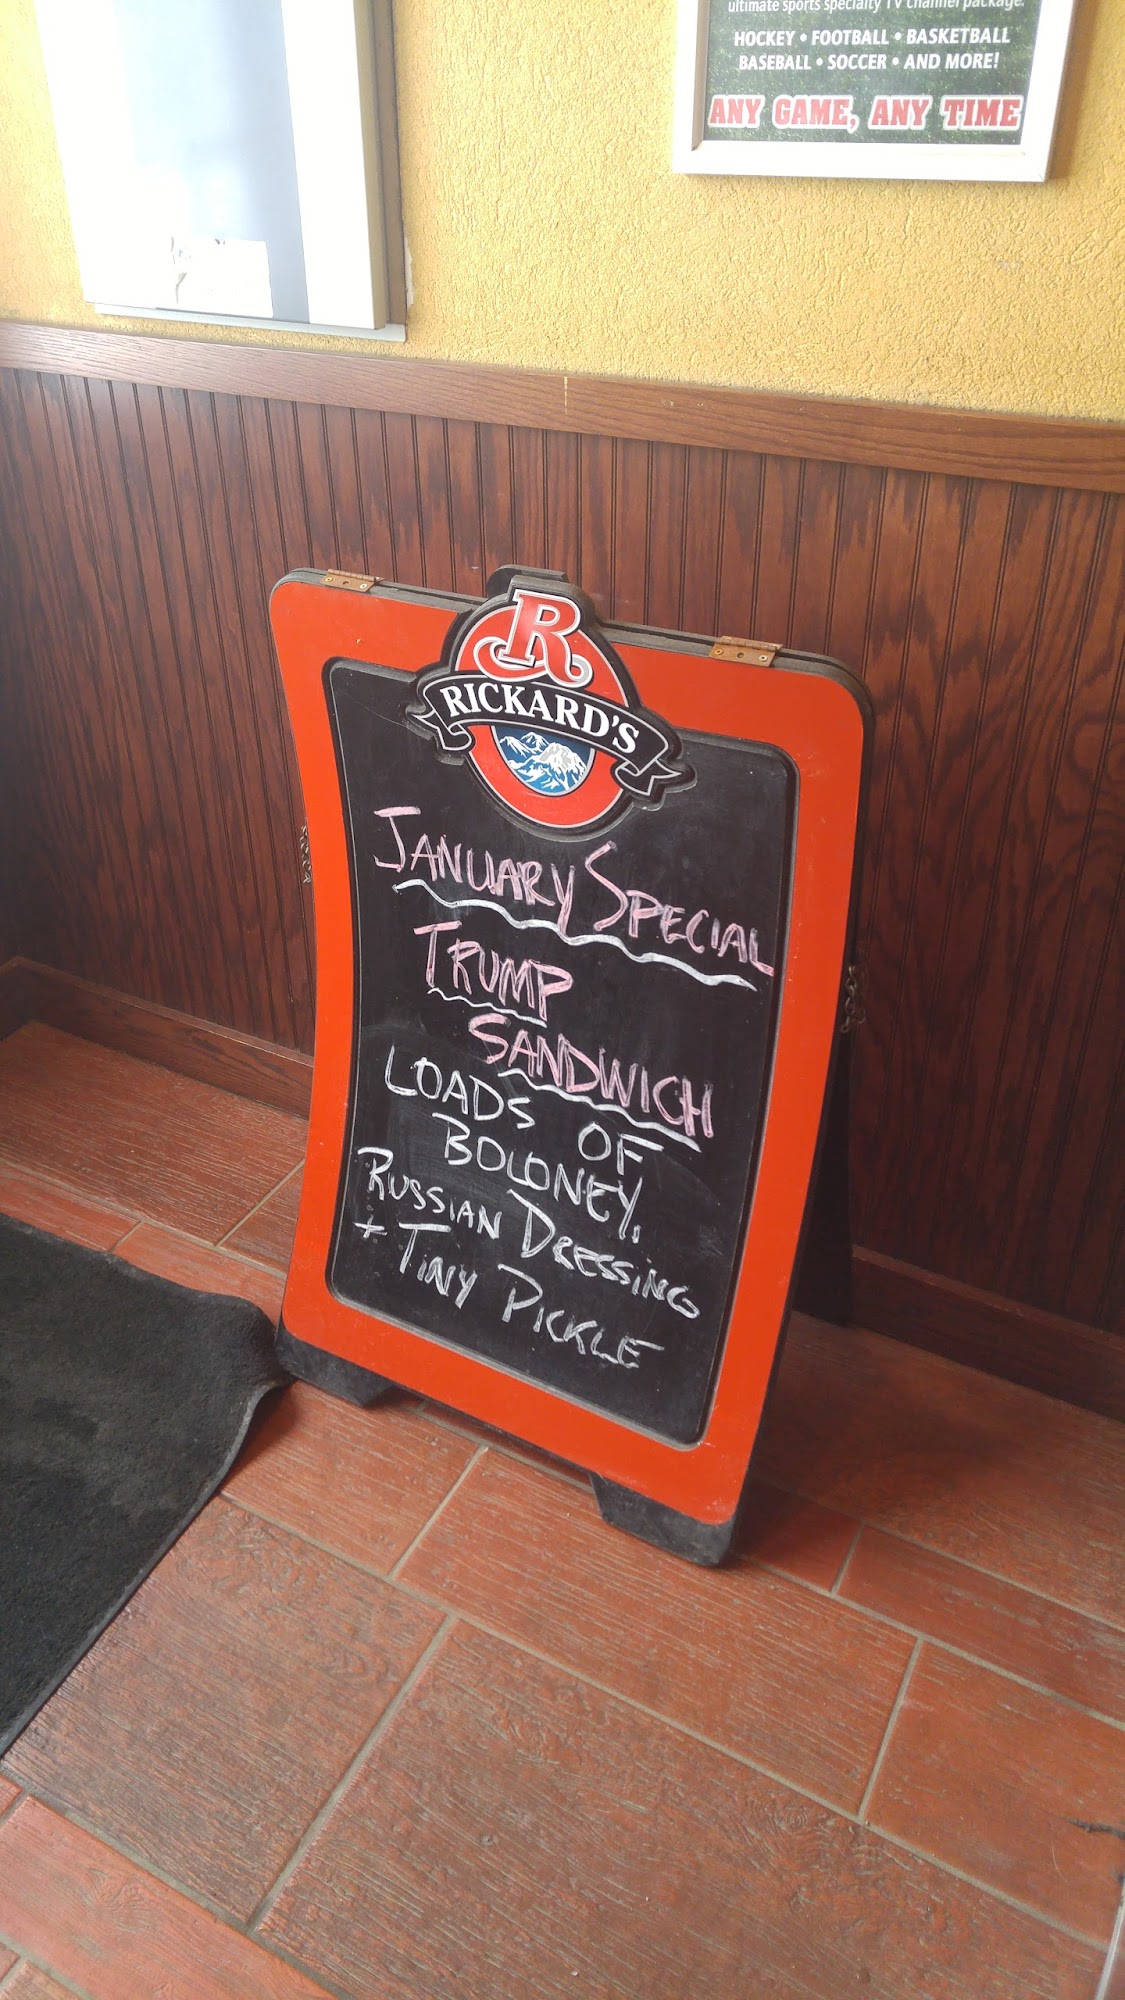 ultimate sports specialty TV channel package.
HOCKEY • FOOTBALL • BASKETBALL
BASEBALL • SOCCER • AND MORE!
ANY GAME, ANY TIME
R
RICKARD'S
JANUARY SPECIAL
TRUMP
SANDWICH
LOADS OF
BOLONEY,
RUSSIAN DRESSING
+ TINY PICKLE